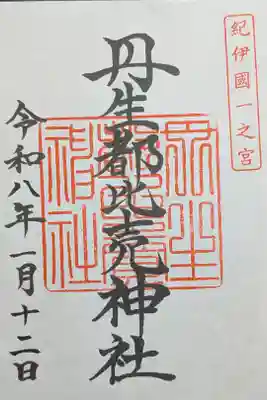 紀伊國一之宮
丹生都比売神社
令和八年一月十二日